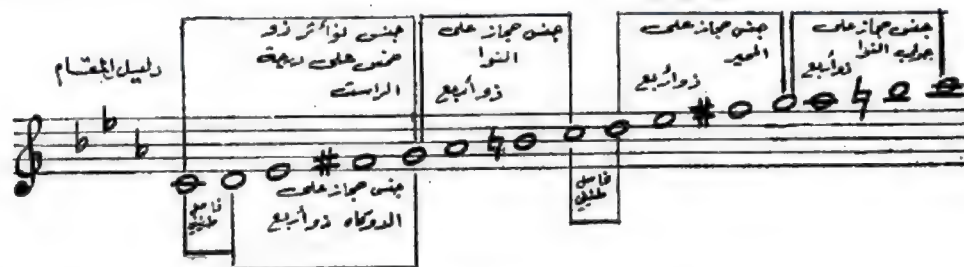 دليل المقام
جنس نوأثر ذو
خمس على درجة
الراست
جنس حجاز على
النوا
ذو أربع
جنس حجاز على
المحير
ذو أربع
جنس حجاز على
جواب النوا
ذو أربع
فاصل
طنيني
جنس حجاز على
الدوكاه ذو أربع
فاصل
طنيني